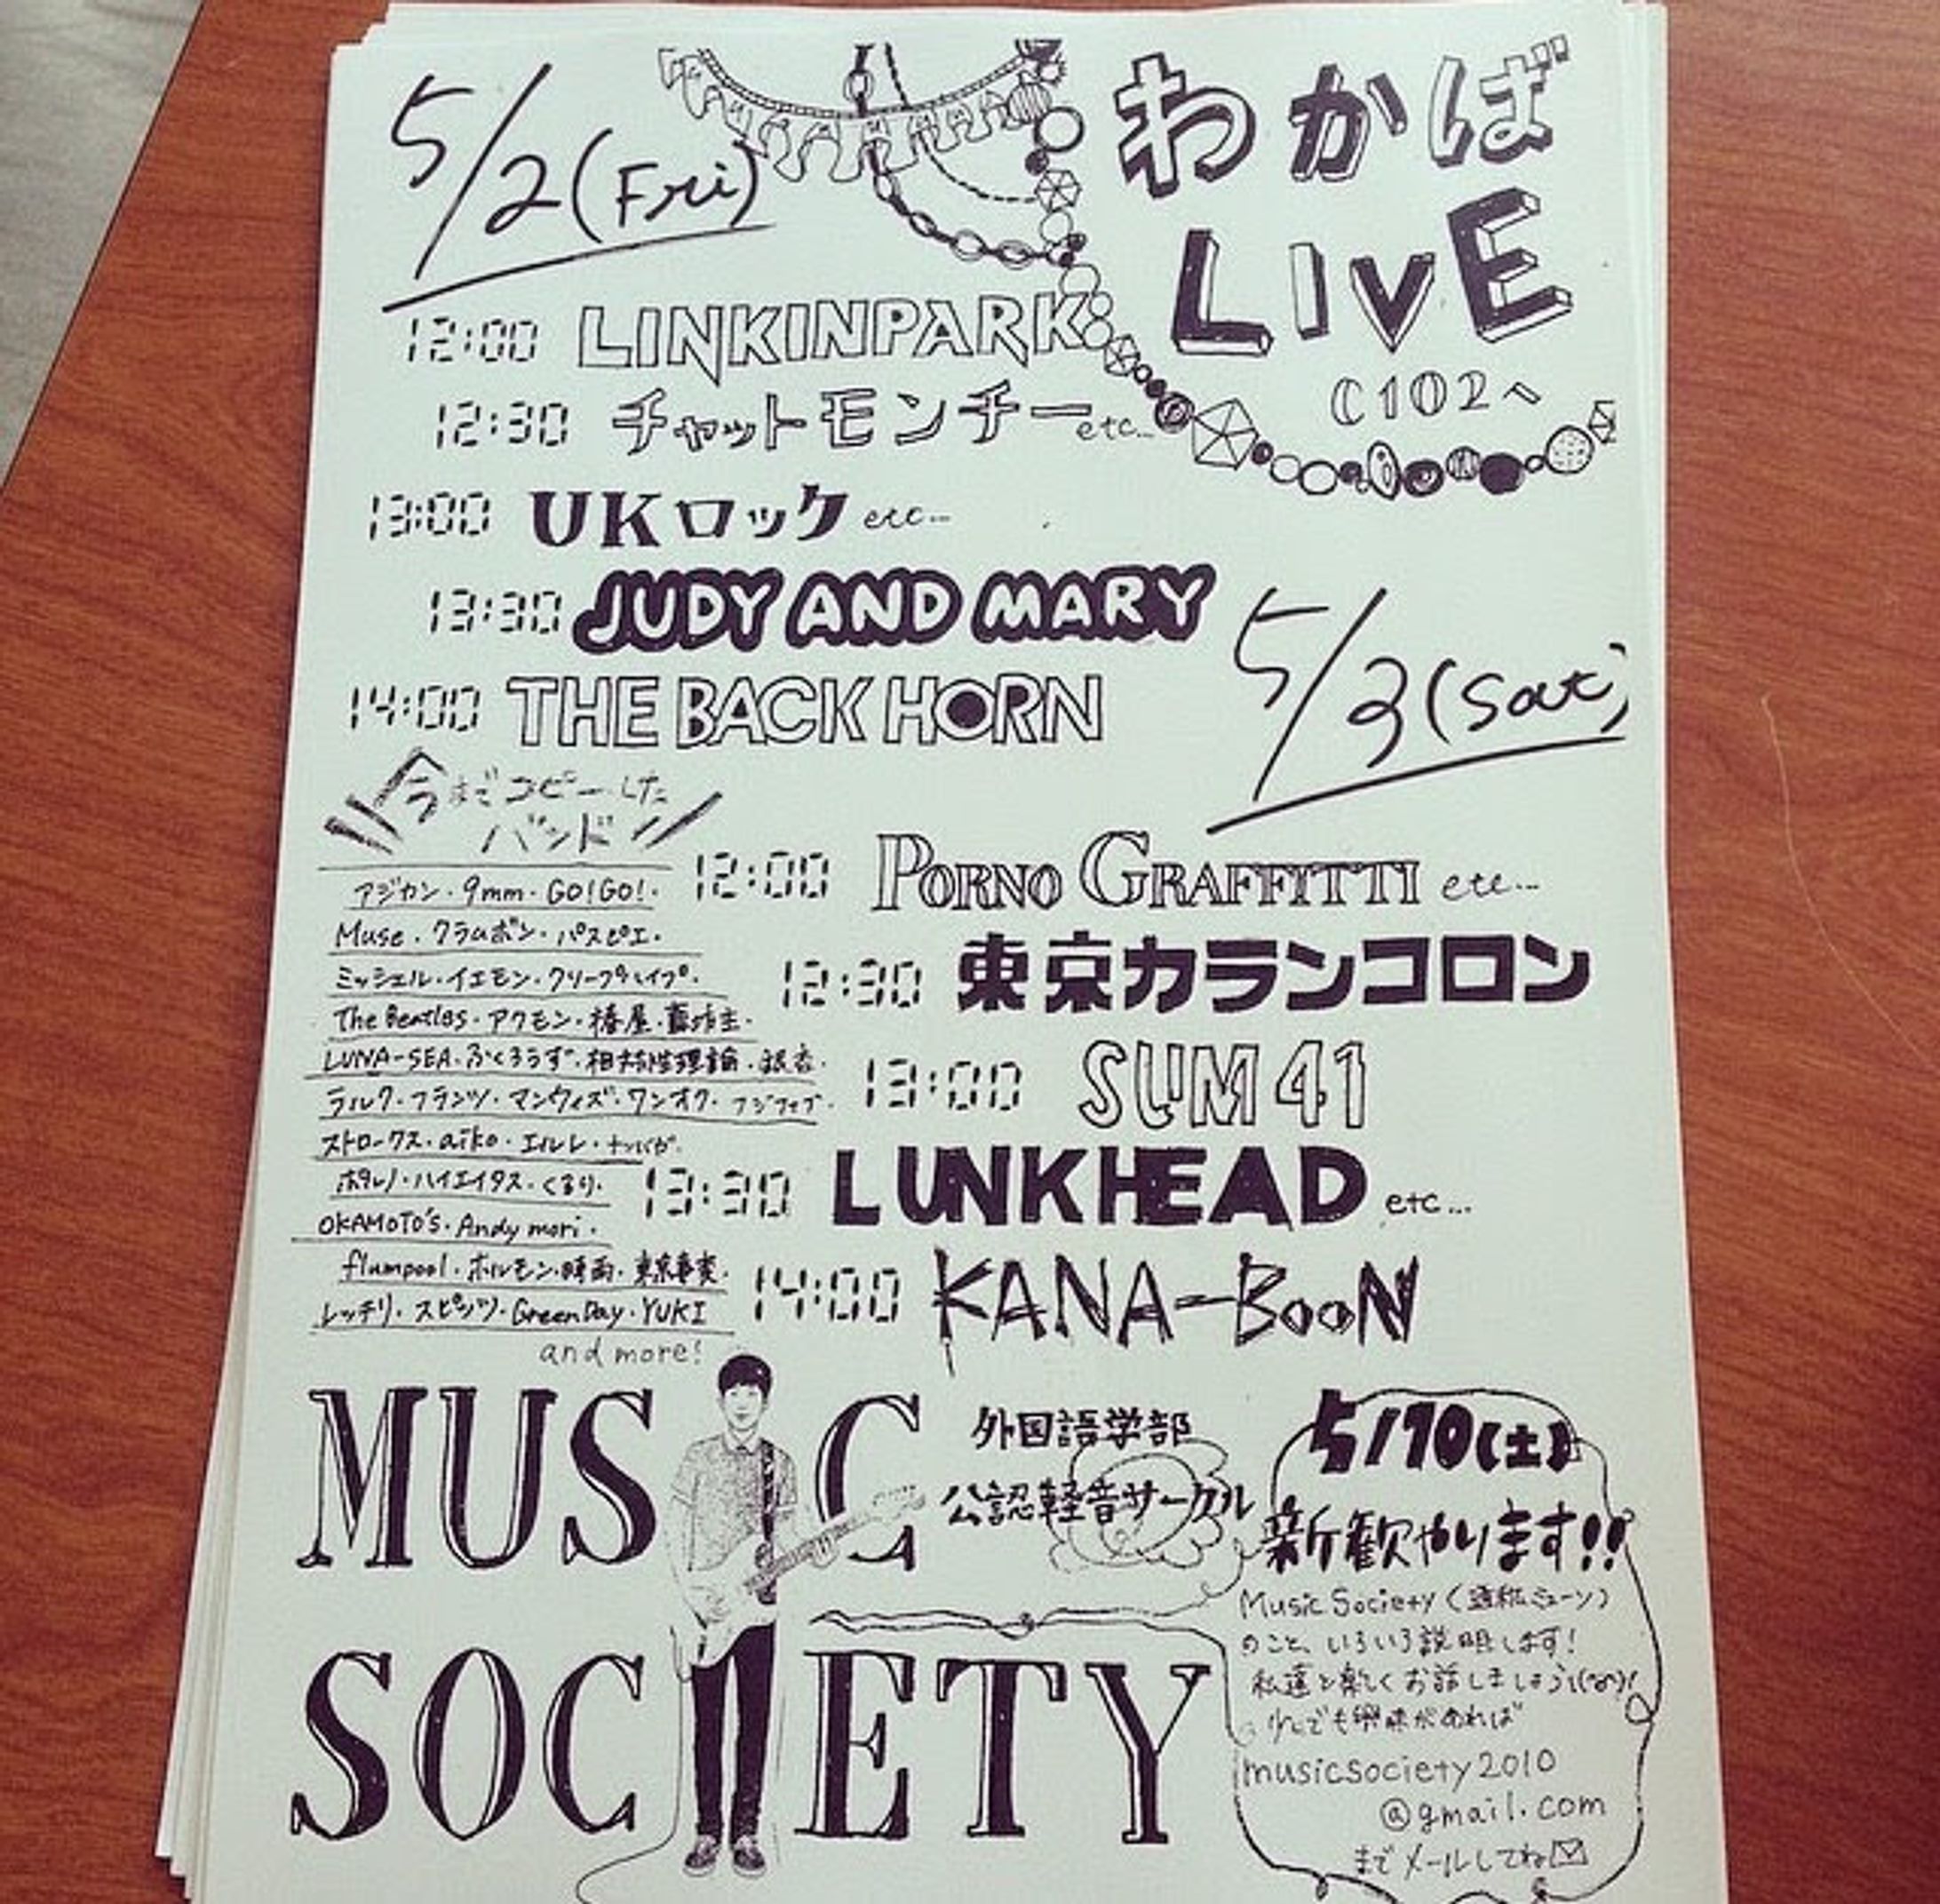 5/2(Fri)
わかば
LIVE
C102へ
12:00 LINKINPARK
12:30 チャットモンチー etc...
13:00 UKロック etc...
13:30 JUDY AND MARY
14:00 THE BACK HORN
5/3(Sat)
12:00 PORNO GRAFFITTI etc...
12:30 東京カランコロン
13:00 SUM 41
13:30 LUNKHEAD etc...
14:00 KANA-BOON
今までコピーした
バンド
アジカン・9mm・GO!GO!・
Muse・クラムボン・パスピエ・
ミッシェル・イエモン・クリープハイプ・
The Beatles・アクモン・椿屋・藍坊主・
LUNA-SEA・ふくろうず・相対性理論・銀杏・
ラルク・フランツ・マンウィズ・ワンオク・フジファブ・
ストロークス・aiko・エルレ・ナンバガ・
ポタレノ・ハイエイタス・くるり・
OKAMOTO'S・Andy mori・
flumpool・ホルモン・時雨・東京事変・
レッチリ・スピッツ・GreenDay・YUKI
and more!
MUSIC
SOCIETY
外国語学部
公認軽音サークル
5/10(土)
新歓やります!!
Music Society (通称ミューソ)
のこと、いろいろ説明します!
私達と楽しくお話しましょう
少しでも興味があれば
musicsociety2010
@gmail.com
までメールしてね